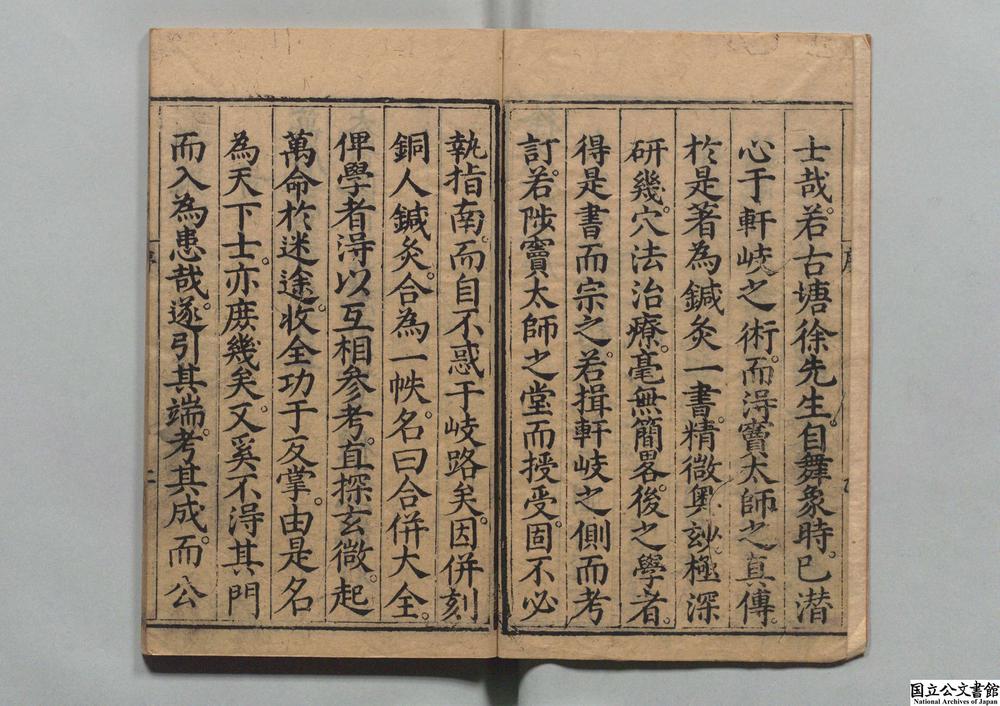 士哉。若古塘徐先生。自舞象時。已潜
心于軒岐之術。而淂竇太師之真傳。
於是著為鍼灸一書。精微奥玅極深
研幾。穴法治療。毫無簡畧。後之學者。
得是書而宗之。若揖軒岐之側而考
訂。若陟竇太師之堂而授受。固不必
執指南。而自不惑于岐路矣。因併刻
銅人鍼灸。合為一帙。名曰合併大全。
俾學者淂以互相參考。直探玄微。起
萬命於迷途。收全功于反掌。由是名
為天下士。亦庻幾矣。又奚不淂其門
而入為患哉。遂引其端。考其成。而公
序
二
国立公文書館
National Archives of Japan